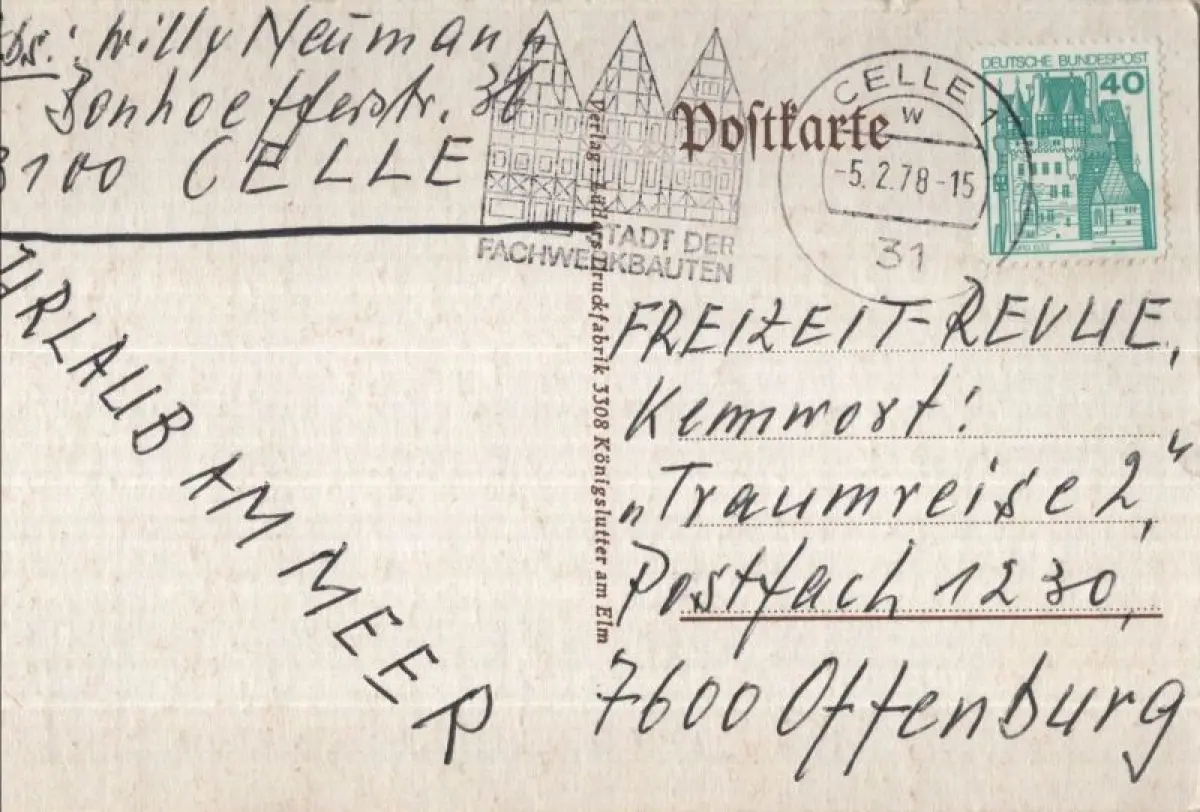 Abs.: Willy Neumann
Bonhoefferstr. 36
3100 CELLE
URLAUB AM MEER
STADT DER
FACHWERKBAUTEN
Verlag Lüders Druckfabrik 3308 Königslutter am Elm
Postkarte
CELLE
w
-5.2.78-15
31
DEUTSCHE BUNDESPOST
40
FREIZEIT-REVUE,
Kennwort:
„Traumreise 2“,
Postfach 1230,
7600 Offenburg